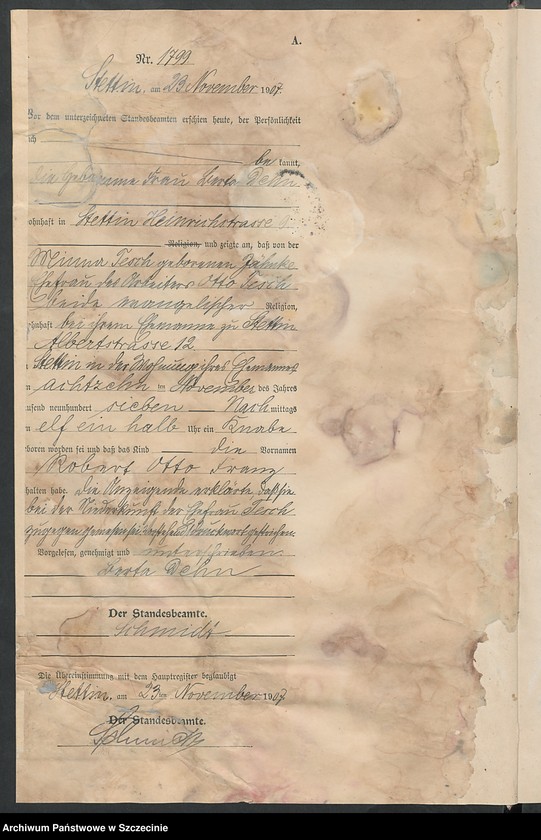 A.
Nr. 1799
Stettin, am 23 November 1907.
Vor dem unterzeichneten Standesbeamten erschien heute, der Persönlichkeit
nach
be kannt,
die Hebamme Frau Berta Dehn
wohnhaft in Stettin Heinrichstrasse
Religion, und zeigte an, daß von der
Minna Tesch geborenen Jahnke
Ehefrau des Arbeiters Otto Tesch
beide evangelischer Religion,
wohnhaft bei ihrem Ehemanne zu Stettin
Albertstrasse 12
Stettin in der Wohnung ihres Ehemannes
achtzehn ten November des Jahres
tausend neunhundert sieben Nach mittags
elf ein halb Uhr ein Knabe
geboren worden sei und daß das Kind die Vornamen
Robert Otto Franz
erhalten habe. Die Anzeigende erklärte, daß sie
bei der Niederkunft der Ehefrau Tesch
zugegen gewesen sei. Druckwort gestrichen.
Vorgelesen, genehmigt und unterschrieben
Berta Dehn
Der Standesbeamte.
Schmidt
Die Übereinstimmung mit dem Hauptregister beglaubigt
Stettin, am 23 ten November 1907.
Der Standesbeamte.
Schmidt
Archiwum Państwowe w Szczecinie